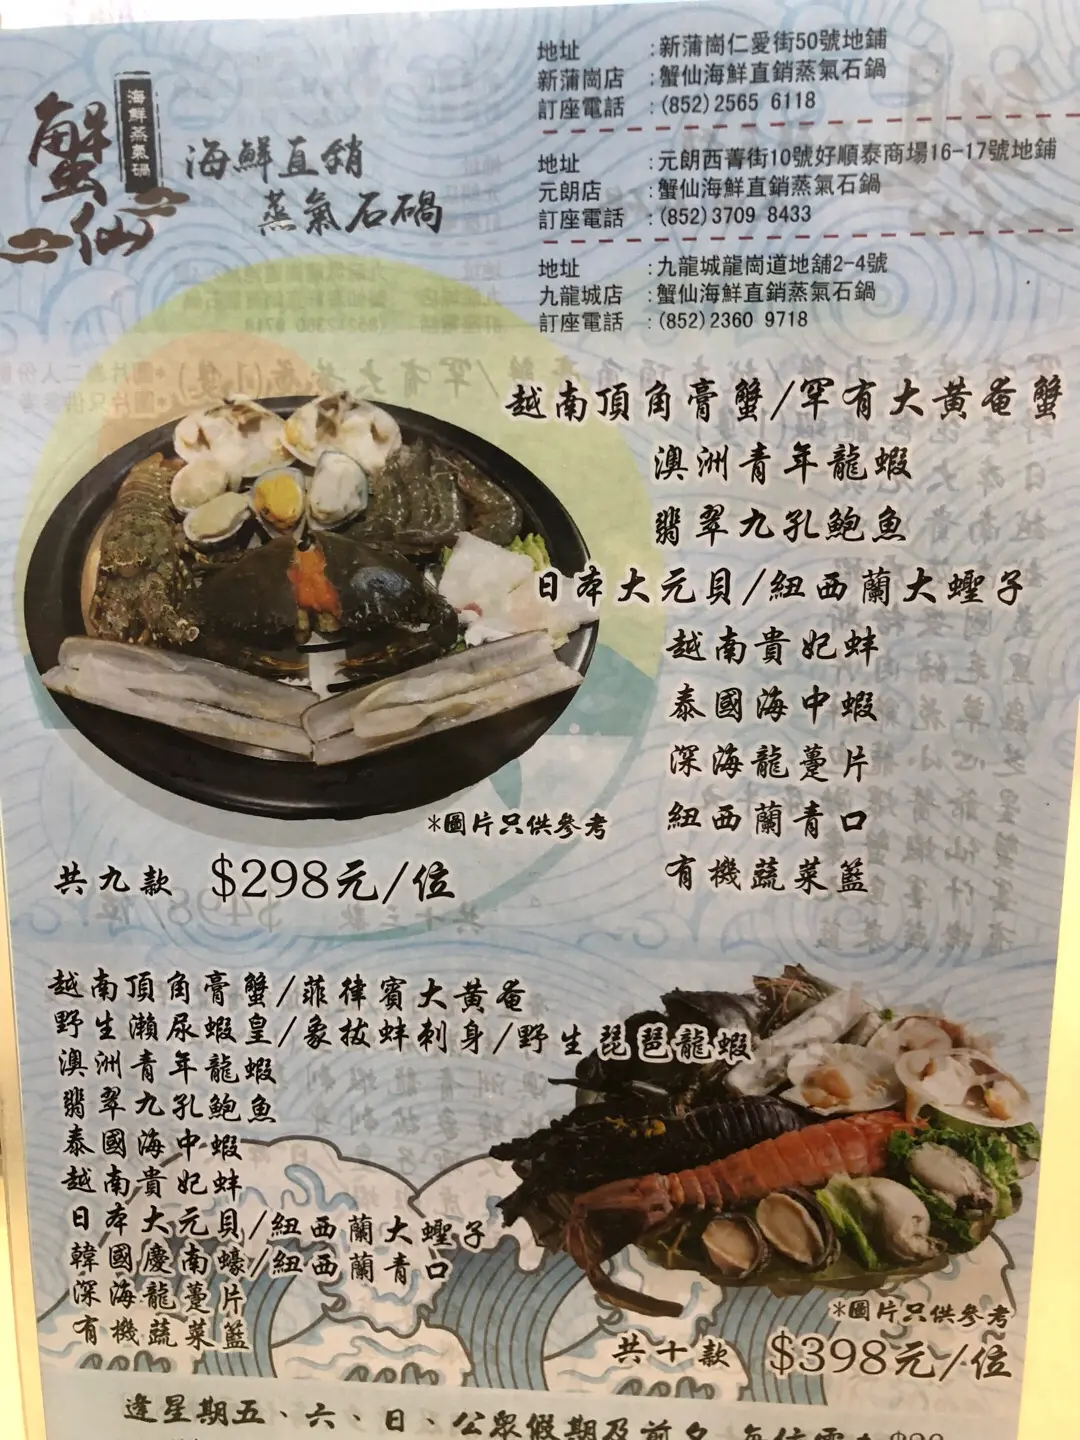 蟹仙
海鮮蒸氣鍋
海鮮直銷
蒸氣石鍋
地址 :新蒲崗仁愛街50號地鋪
新蒲崗店 :蟹仙海鮮直銷蒸氣石鍋
訂座電話 :(852)2565 6118
地址 :元朗西菁街10號好順泰商場16-17號地鋪
元朗店 :蟹仙海鮮直銷蒸氣石鍋
訂座電話 :(852)3709 8433
地址 :九龍城龍崗道地舖2-4號
九龍城店 :蟹仙海鮮直銷蒸氣石鍋
訂座電話 :(852)2360 9718
越南頂角膏蟹/罕有大黃奄蟹
澳洲青年龍蝦
翡翠九孔鮑魚
日本大元貝/紐西蘭大蟶子
越南貴妃蚌
泰國海中蝦
深海龍躉片
紐西蘭青口
有機蔬菜籃
*圖片只供參考
共九款 $298元/位
越南頂角膏蟹/菲律賓大黃奄
野生瀨尿蝦皇/象拔蚌刺身/野生琵琶龍蝦
澳洲青年龍蝦
翡翠九孔鮑魚
泰國海中蝦
越南貴妃蚌
日本大元貝/紐西蘭大蟶子
韓國慶南蠔/紐西蘭青口
深海龍躉片
有機蔬菜籃
*圖片只供參考
共十款 $398元/位
逢星期五、六、日、公眾假期及前夕